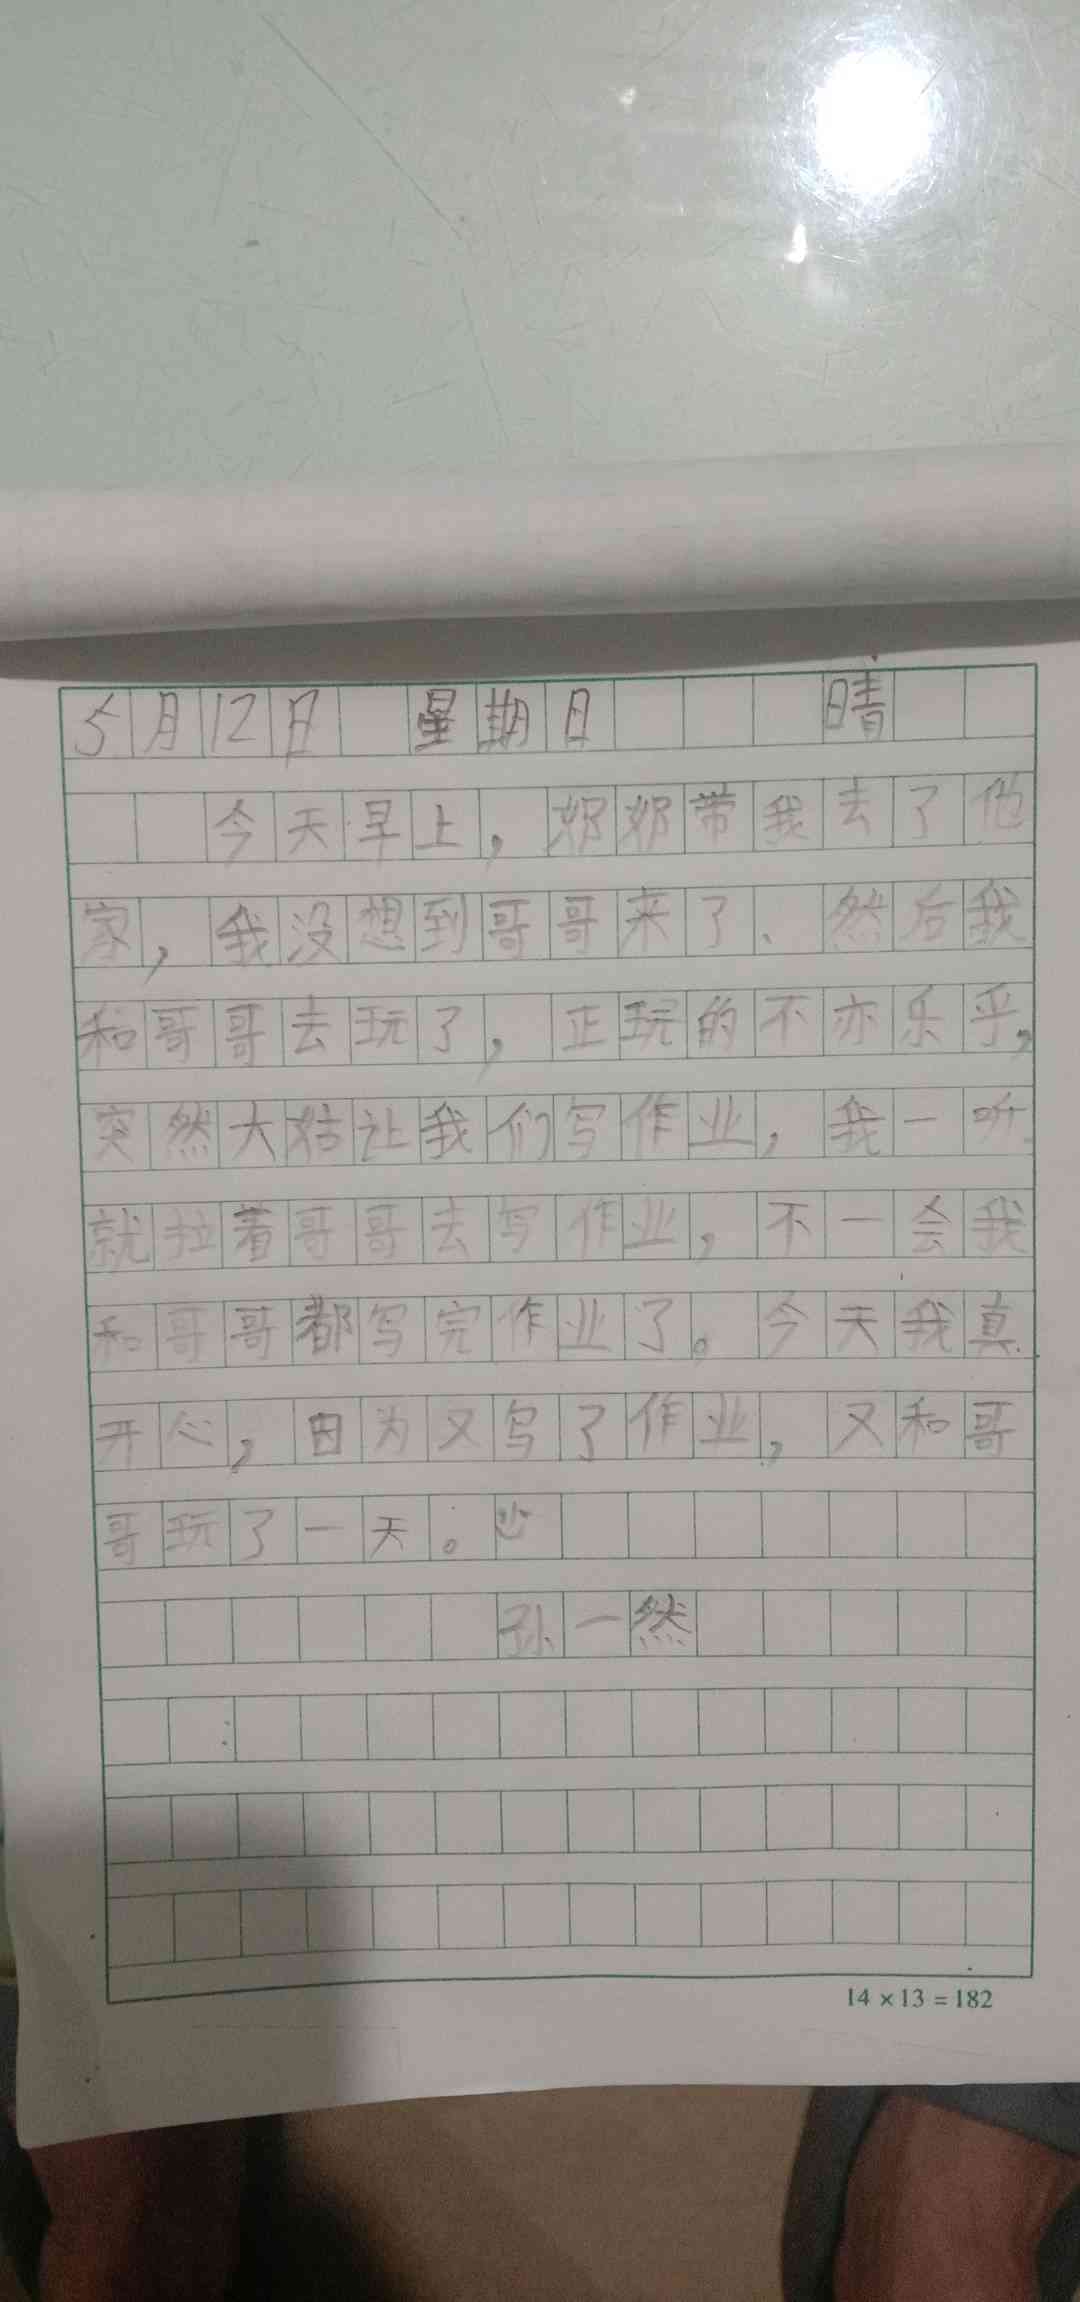 5月12日 星期日 晴
今天早上，奶奶带我去了他
家，我没想到哥哥来了、然后我
和哥哥去玩了，正玩的不亦乐乎，
突然大姑让我们写作业，我一听
就拉着哥哥去写作业，不一会我
和哥哥都写完作业了。今天我真
开心，因为又写了作业，又和哥
哥玩了一天。
孙一然
14×13=182